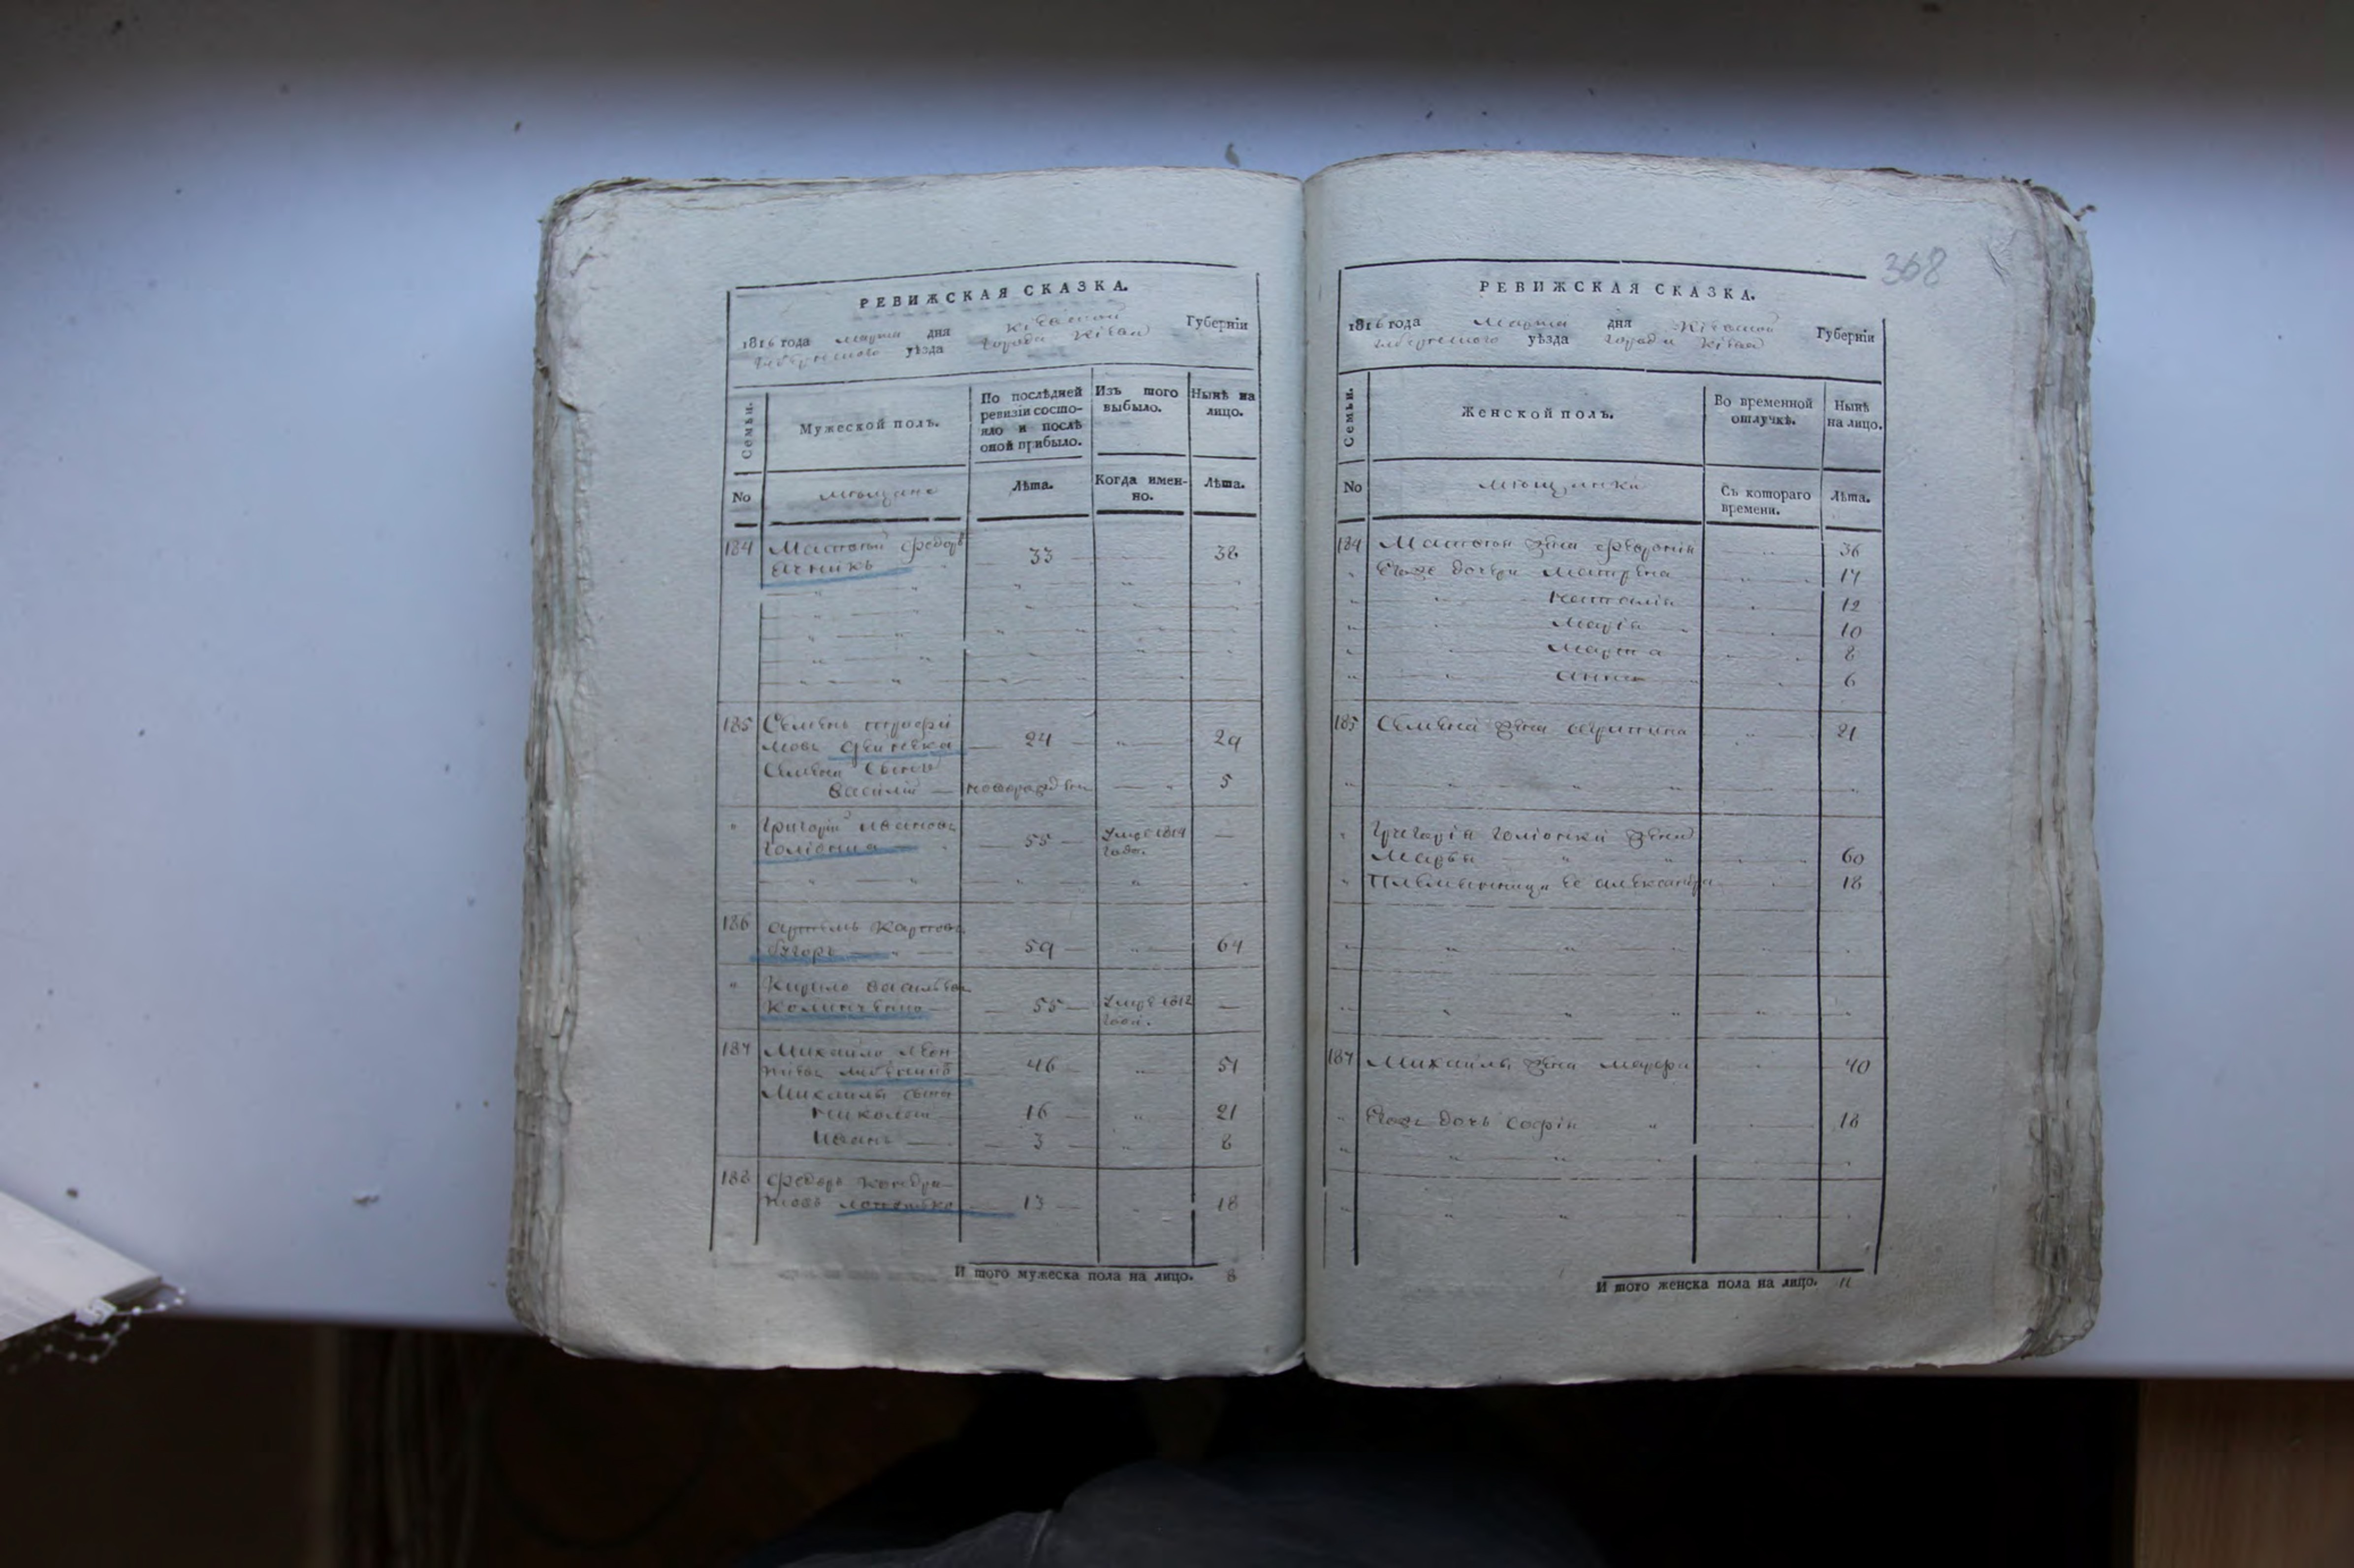 РЕВИЖСКАЯ СКАЗКА.
1816 года марта дня Кіевской Губерніи
уѣзда города Кіева
Семьи.
Мужеской полъ.
По послѣдней ревизіи состояло и послѣ оной прибыло.
Изъ того выбыло.
Нынѣ на лицо.
No
мѣщане
Лѣта.
Когда именно.
Лѣта.
184 Федоръ 33 38
185 Семенъ
24 29
Семена сынъ
Василій новорожден 5
Григорій Ивановъ 55 умре 1814
года.
186 Артемъ Карповъ
59 64
Кирило Васильевъ 55 умре 1812
года.
187 Михайло Леон
46 51
Михайлы сыны
Николай 16 21
Иванъ 3 8
188 Федоръ Кондра
товъ 13 18
И того мужеска пола на лицо. 8
368
РЕВИЖСКАЯ СКАЗКА.
1816 года Марта дня Кіевской Губерніи
уѣзда города Кіева
Семьи.
Женской полъ.
Во временной отлучкѣ.
Нынѣ на лицо.
No
мѣщанки
Съ котораго времени.
Лѣта.
184 жена Февронія 36
Егоже дочери Матрена 14
Наталія 12
Марія 10
Марфа 8
Анна 6
185 Семена жена 21
Григорія жена
Марья 60
Племянница ее Александра 18
187 Михайлы жена Марфа 40
Егоже дочь Софія 18
И того женска пола на лицо. 11